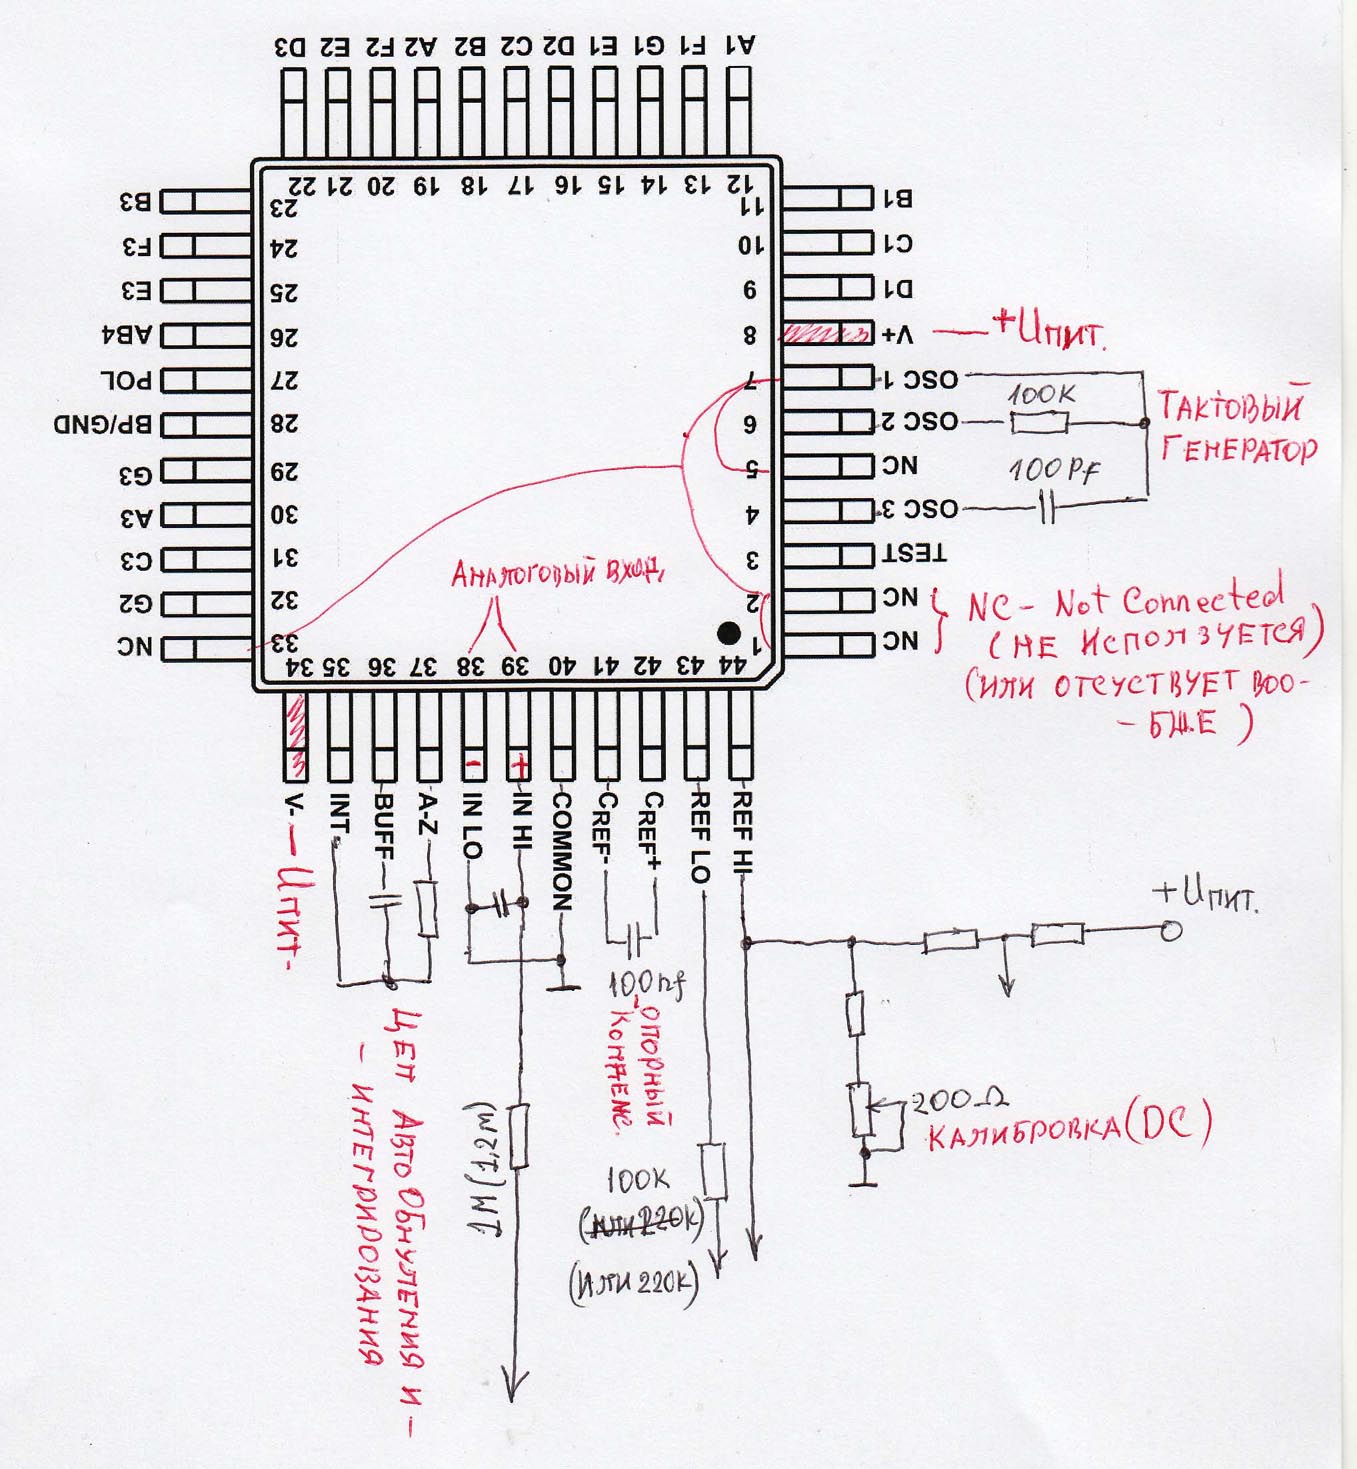 D3 E2 F2 A2 B2 C2 D2 E1 G1 F1 A1
22 21 20 19 18 17 16 15 14 13 12
B3 23
F3 24
E3 25
AB4 26
POL 27
BP/GND 28
G3 29
A3 30
C3 31
G2 32
NC 33
11 B1
10 C1
9 D1
8 V+ — +Uпит.
7 OSC 1
100K
6 OSC 2
5 NC
100Pf
4 OSC 3
3 TEST
2 NC
1 NC
ТАКТОВЫЙ
ГЕНЕРАТОР
NC - Not Connected
(НЕ ИСПОЛЗУЕТСЯ)
(ИЛИ ОТСУСТВУЕТ ВОО-
- БЩЕ)
Аналоговый вход
34 35 36 37 38 39 40 41 42 43 44
- +
V- INT. BUFF A-Z IN LO IN HI COMMON CREF- CREF+ REF LO REF HI
— Uпит-
ЦЕП АВТО ОБНУЛЕНИЯ И -
- ИНТЕГРИРОВАНИЯ
1M (1,2M)
100nf
ОПОРНЫЙ
КОНДЕНС.
100K
(ИЛИ 220K)
(ИЛИ 220K)
+Uпит.
200Ω
КАЛИБРОВКА (DC)